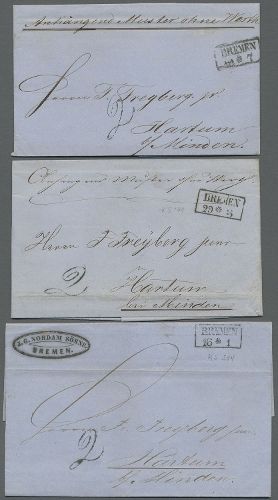 Anhängend Muster ohne Werth
BREMEN
7
Herrn F. Freyberg jr.
2
Hartum
b/Minden.
BREMEN
29 5
Herrn F Freyberg junr
2
Hartum
bei Minden
J.G. NORDAM SÖHNE
BREMEN.
BREMEN
16 1
Herrn Fr. Freyberg jun.
2
Hartum
b/ Minden.